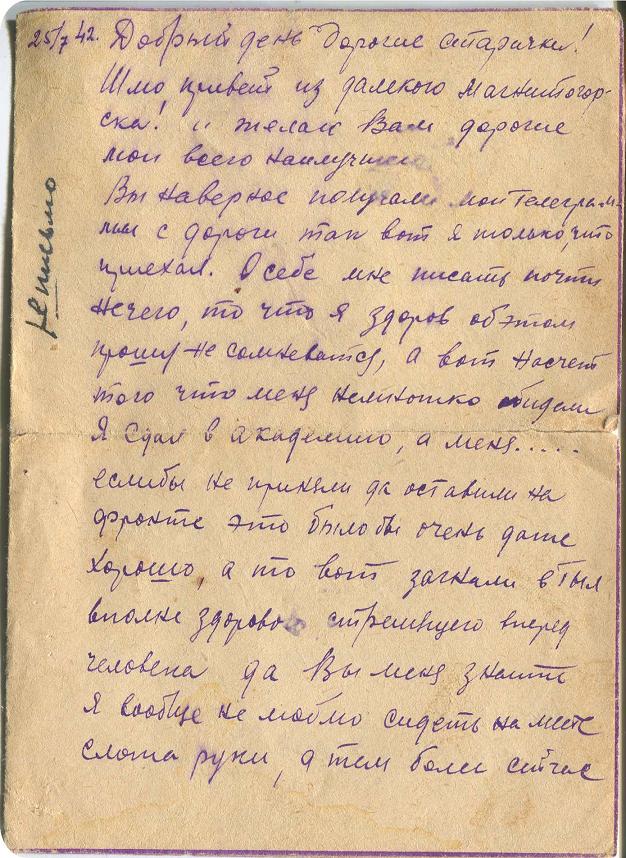 25/7 42. Добрый день Дорогие старички!
Шлю привет из далекого Магнитогор-
ска! и желаю Вам дорогие
мои всего наилучшего
Вы наверное получали мои телеграм-
мы с дороги так вот я только, что
приехал. О себе мне писать почти
нечего, то что я здоров об этом
прошу не сомневатся, а вот насчет
того что меня немножко обидели
Я сдал в академию, а меня.....
еслибы не приняли да оставили на
фронте это былобы очень даже
хорошо, а то вот загнали в тыл
вполне здорового стремивщего вперед
человека да Вы меня знаите
Я вообще не люблю сидеть на месте
сложа руки, а тем более сейчас
письмо